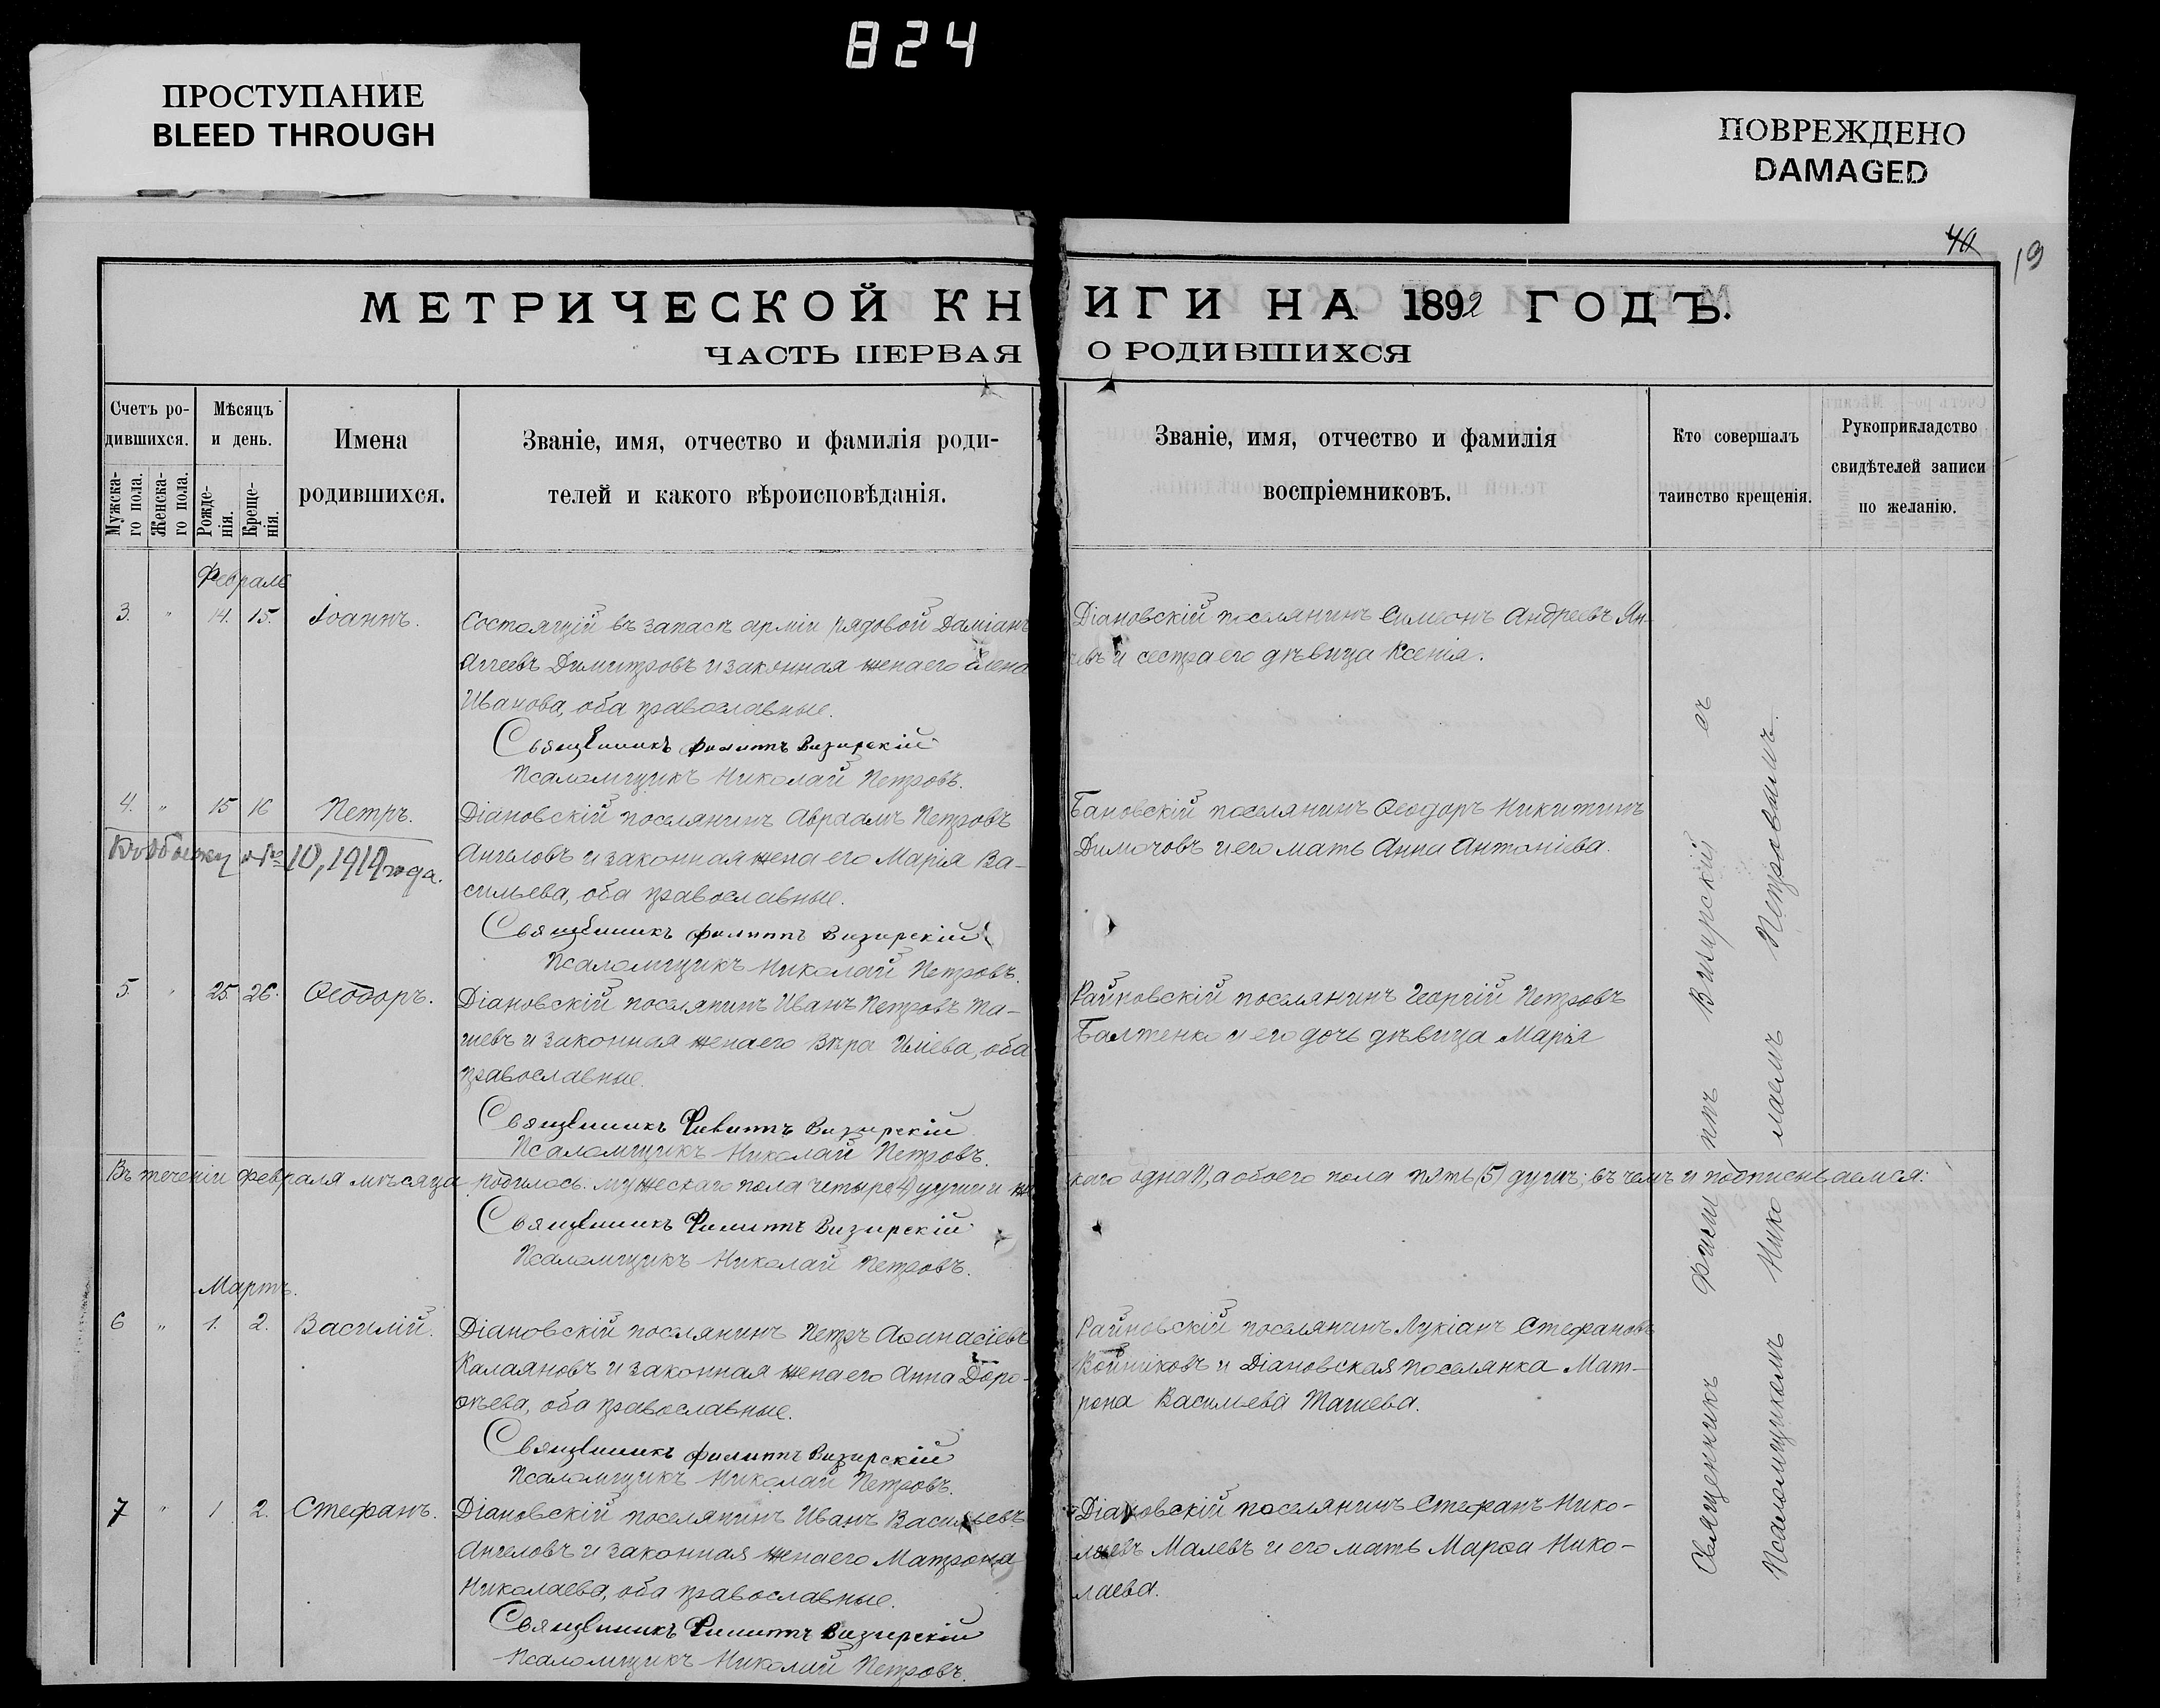 824
ПРОСТУПАНИЕ
BLEED THROUGH
ПОВРЕЖДЕНО
DAMAGED
40
19
МЕТРИЧЕСКОЙ КНИГИ НА 1892 ГОДЪ.
ЧАСТЬ ПЕРВАЯ О РОДИВШИХСЯ
Счетъ ро-
дившихся.
Мужска-
го пола.
Женска-
го пола.
Мѣсяцъ
и день.
Рожде-
нія.
Креще-
нія.
Имена
родившихся.
Званіе, имя, отчество и фамилія роди-
телей и какого вѣроисповѣданія.
Званіе, имя, отчество и фамилія
воспріемниковъ.
Кто совершалъ
таинство крещенія.
Рукоприкладство
свидѣтелей записи
по желанію.
Февраль
3. " 14. 15. Іоаннъ.
Состоящій въ запасѣ арміи рядовой Даміанъ
Аггеевъ Димитровъ и законная жена его Елена
Иванова, оба православные.
Священникъ Филиппъ Визирскій
Псаломщикъ Николай Петровъ.
Діановскій поселянинъ Симеонъ Андреевъ Ян-
чевъ и сестра его дѣвица Ксенія.
4. " 15 16 Петръ.
10, 1919 года.
Діановскій поселянинъ Авраамъ Петровъ
Ангеловъ и законная жена его Марія Ва-
сильева, оба православные.
Священникъ Филиппъ Визирскій
Псаломщикъ Николай Петровъ.
Бановскій поселянинъ Ѳеодоръ Никитинъ
Димочовъ и его мать Анна Антоніева.
5. " 25. 26. Ѳеодоръ.
Діановскій поселянинъ Иванъ Петровъ Та-
шевъ и законная жена его Вѣра Иліева, оба
православные.
Священникъ Филиппъ Визирскій
Псаломщикъ Николай Петровъ.
Райновскій поселянинъ Георгій Петровъ
Балтенко и его дочь дѣвица Марія
Въ теченіи февраля мѣсяца родилось: мужескаго пола четыре (4) души и жен
скаго одна (1), а обоего пола пять (5) душъ; въ чемъ и подписываемся:
Священникъ Филиппъ Визирскій
Псаломщикъ Николай Петровъ.
Мартъ.
6 " 1. 2. Василій.
Діановскій поселянинъ Петръ Аѳанасіевъ
Калаяновъ и законная жена его Анна Доро-
ѳѣева, оба православные.
Священникъ Филиппъ Визирскій
Псаломщикъ Николай Петровъ.
Райновскій поселянинъ Лукіанъ Стефановъ
Войниковъ и Діановская поселянка Мат-
рона Васильева Ташева.
7 " 1 2. Стефанъ.
Діановскій поселянинъ Иванъ Васильевъ
Ангеловъ и законная жена его Матрона
Николаева, оба православные.
Священникъ Филиппъ Визирскій
Псаломщикъ Николай Петровъ.
Діановскій поселянинъ Стефанъ Нико-
лаевъ Малевъ и его мать Марѳа Нико-
лаева.
Священникъ Филиппъ Визирскій съ
Псаломщикомъ Николаемъ Петровымъ.